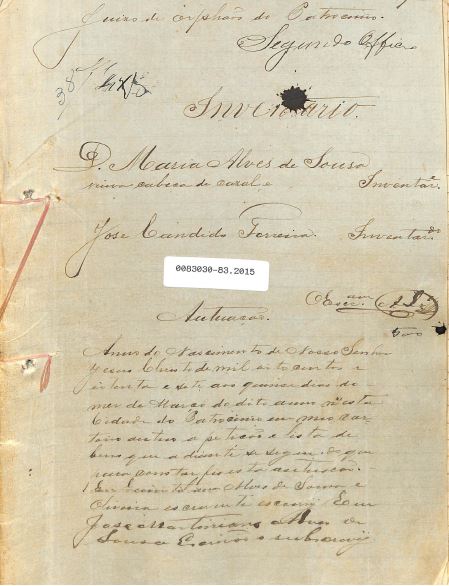 Juizo de orphãos do Patrocinio.
Segundo Officio
Inventario.
D. Maria Alves de Sousa
viuva cabeça de casal e Inventar.e
José Candido Ferreira. Inventar.do
0083030-83.2015
Escr.am
Autuação.
Anno do Nascimento de Nosso Senhor
Jesus Christo de mil oito centos e
oitenta e sete aos quinze dias do
mez de Março do dito anno n'esta
Cidade do Patrocinio em meo car-
torio autuo a petição e lista de
bens que a diante se segue. do que
para constar fiz esta autuação.
Eu Alves de Sousa e
Oliveira escrevente escrevi. E eu
José Alves de
Sousa Escrivão o subscrevy